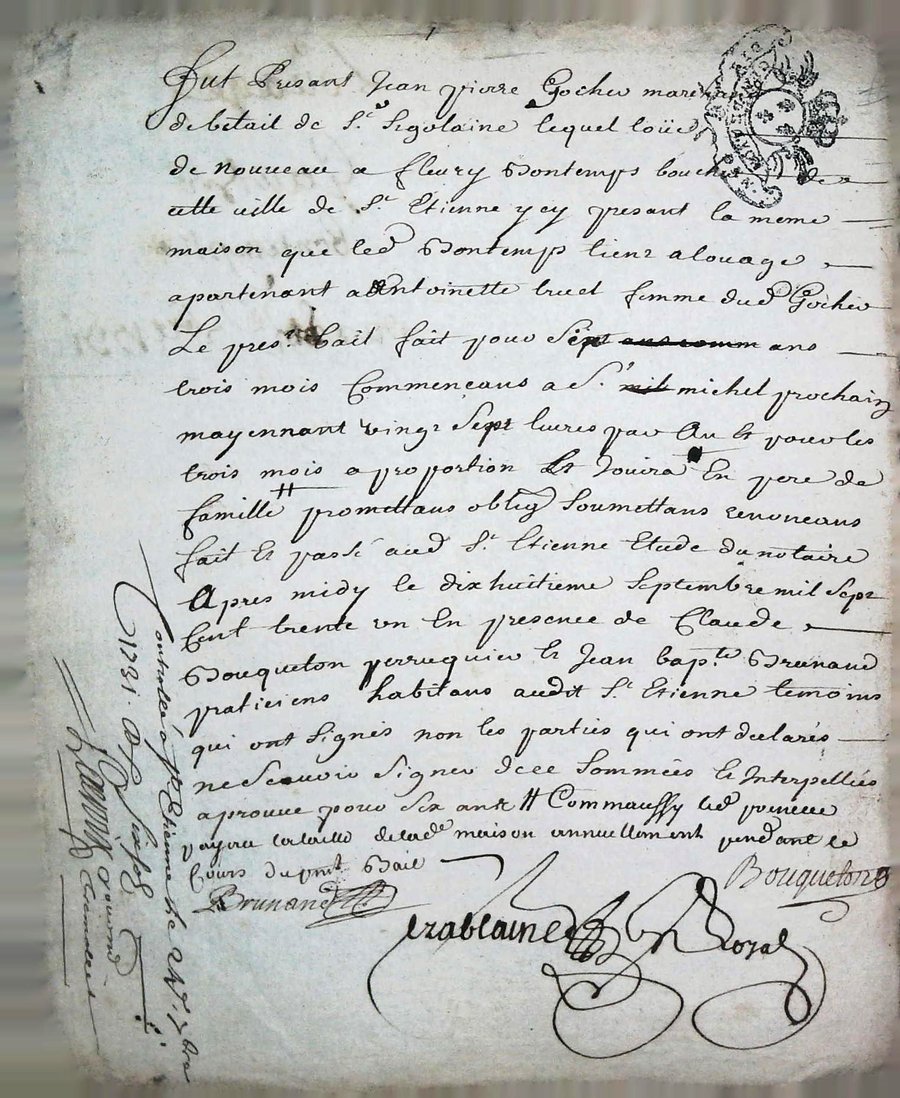 Fut Presant Jean pierre Gocher
de betail de St Segolaine lequel loüe
de nouveau a fleury Bontemps boucher de
cette ville de St Etienne y cy presant la meme
maison que led Bontemps tient a louage
apartenant a Antoinette femme dud Gocher
Le prest bail fait pour Sept ans
trois mois Commencans a St michel prochain
moyennant vingt Sept livres par An Et pour les
trois mois a proportion Et Jouira En pere de
famille # promettans oblig Soumettans renoncans
fait Et passé aud St Etienne Etude du notaire
Apres midy le dixhuitieme Septembre mil Sept
Cent trente un En presence de Claude
Bouqueton perruquier Et Jean bapte Brunand
praticiens habitans audit St Etienne temoins
qui ont Signés non les parties qui ont declarés
ne Scavoir Signer de ce Sommées Et Interpellés
aprouve pour Six ans # Comm aussy led preneur
payera la taille de lad maison annuellement pendant le
Cours du pnt Bail
Bouqueton
Brunand
Royal
Controllé a St Etienne le 24e 7bre
1731